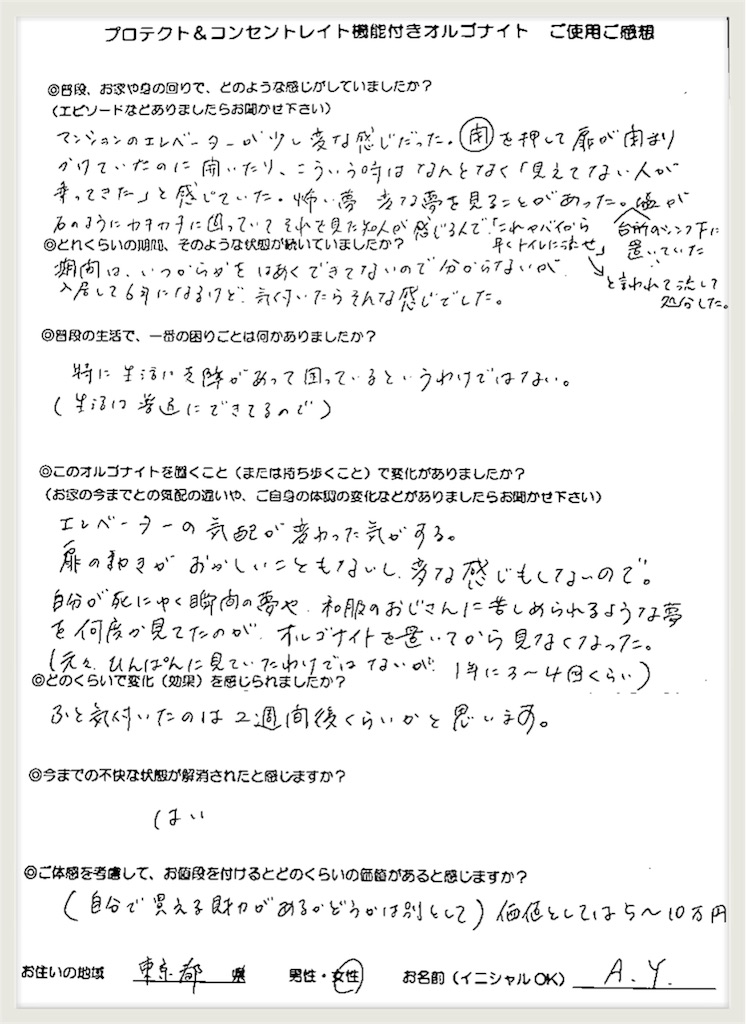 プロテクト＆コンセントレイト機能付きオルゴナイト　ご使用ご感想
◎普段、お家や身の回りで、どのような感じがしていましたか？
（エピソードなどありましたらお聞かせ下さい）
マンションのエレベーターが少し変な感じだった。閉を押して扉が閉まり
かけていたのに開いたり、こういう時はなんとなく「見えてない人が
乗ってきた」と感じていた。怖い夢 変な夢を見ることがあった。塩が
石のようにカチカチに固っていてそれを見た知人が感じる人で、「これヤバイから
早くトイレに流せ」
台所のシンク下に
置いていた
と言われて流して
処分した。
◎どれくらいの期間、そのような状態が続いていましたか？
期間は、いつからかをはあくできてないので分からないが、
入居して6年になるけど、気付いたらそんな感じでした。
◎普段の生活で、一番の困りごとは何かありましたか？
特に生活に支障があって困っているというわけではない。
（生活は普通にできてるので）
◎このオルゴナイトを置くこと（または持ち歩くこと）で変化がありましたか？
（お家の今までとの気配の違いや、ご自身の体調の変化などがありましたらお聞かせ下さい）
エレベーターの気配が変わった気がする。
扉の動きがおかしいこともないし、変な感じもしてないので。
自分が死にゆく瞬間の夢や、和服のおじさんに苦しめられるような夢
を何度か見てたのが、オルゴナイトを置いてから見なくなった。
（元々、ひんぱんに見ていたわけではないが、1年に3〜4回くらい）
◎どのくらいで変化（効果）を感じられましたか？
ふと気付いたのは2週間後くらいかと思います。
◎今までの不快な状態が解消されたと感じますか？
はい
◎ご体感を考慮して、お値段を付けるとどのくらいの価値があると感じますか？
（自分で買える財力があるかどうかは別として）価値としては5〜10万円
お住いの地域　東京都　県　男性・女性　お名前（イニシャルOK）　A.Y.